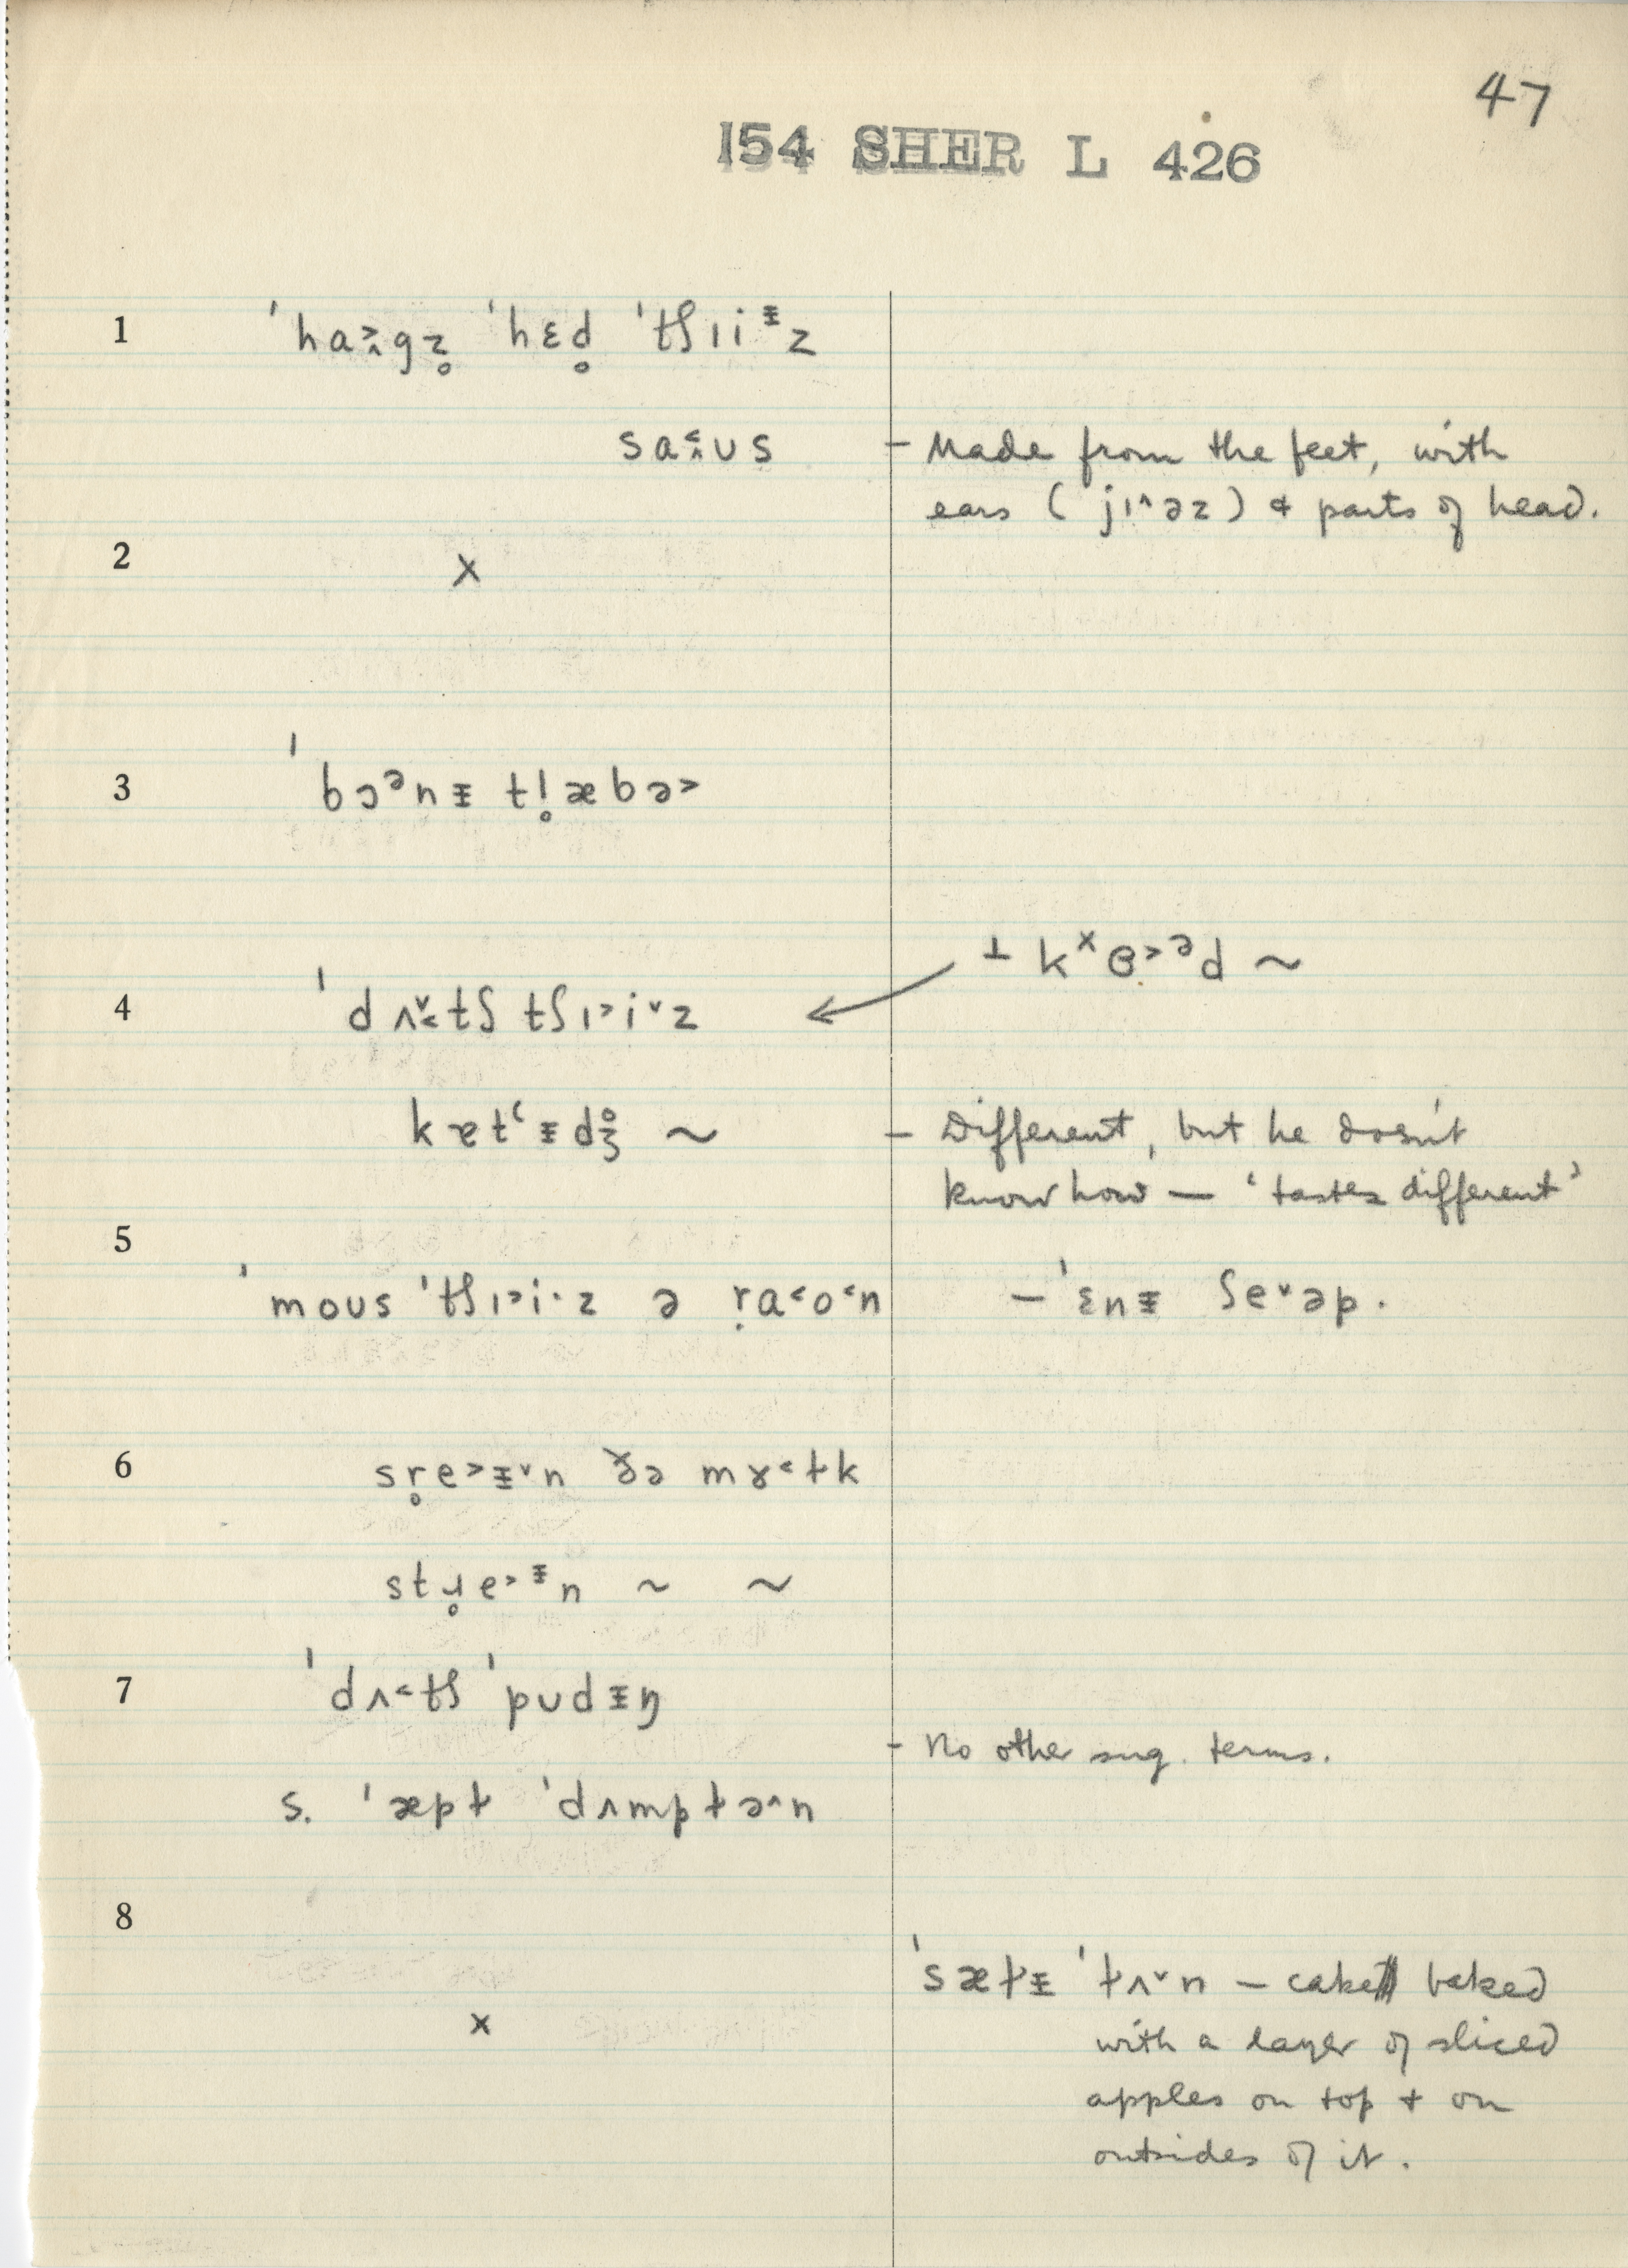 47
154 SHER L 426
1 ˈhaˑgz̥ ˈhɛd̥ ˈtʃɪiᵻz
saʌ˂ʊs – Made from the feet, with
ears (jɪ^əz) & parts of head.
2 x
3 ˈbɔᵊnᵻ tl̥æbə˃
Ʇkˣɵ˃ᵊd ~
4 ˈdʌ˅˂tʃ tʃɪ˃i˅z
kætʻᵻdʒ̊ ~ – Different, but he doesn't
know how — 'tastes different'
5
ˈmoʊs ˈtʃɪ˃i·z ə ṛa˂o˂n – ˈɛnᵻ ʃe˅əp.
6 sr̥e˃ᵻ˅n ðə mɤ˂ɫk
stɹ̥e˃ᵻn ~ ~
7 ˈdʌ˂tʃ ˈpʊdᵻŋ
– No other sug. terms.
s. ˈæpɫ ˈdʌmpɫə^n
8
ˈsæɫᵻ ˈɫʌ˅n – cake baked
x with a layer of sliced
apples on top + on
outsides of it.